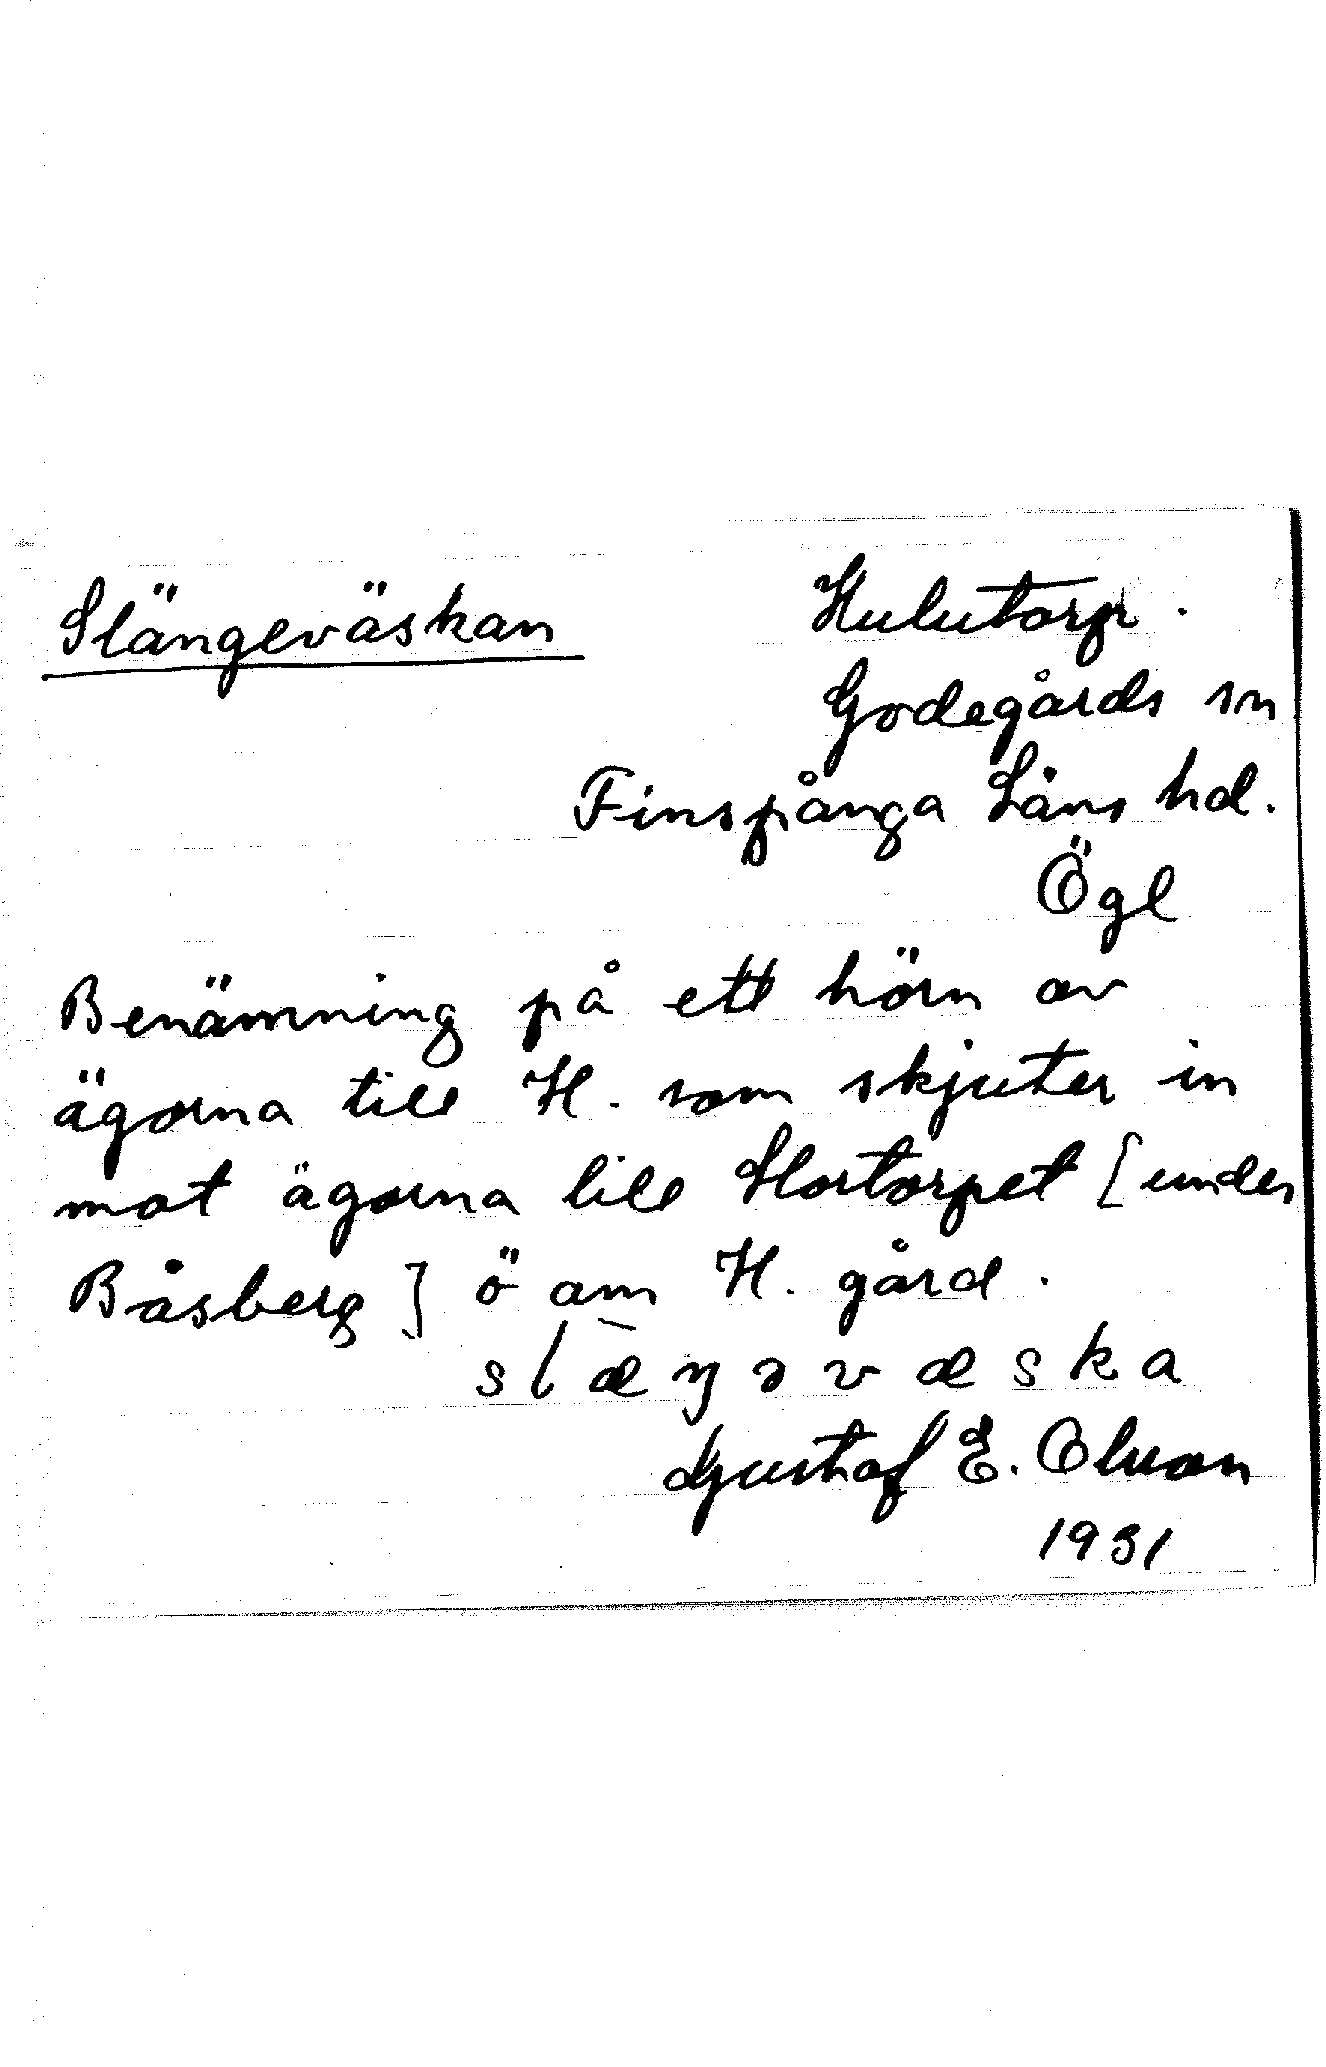 Slängeväskan
Hulutorp.
Godegårds sn
Finspånga Läns hd.
Ögl
Benämning på ett hörn av
ägorna till H. som skjuter in
mot ägorna till Stortorpet [under
Båsberg] ö om H. gård.
slæŋəvæska
Gustaf E. Olsson
1931